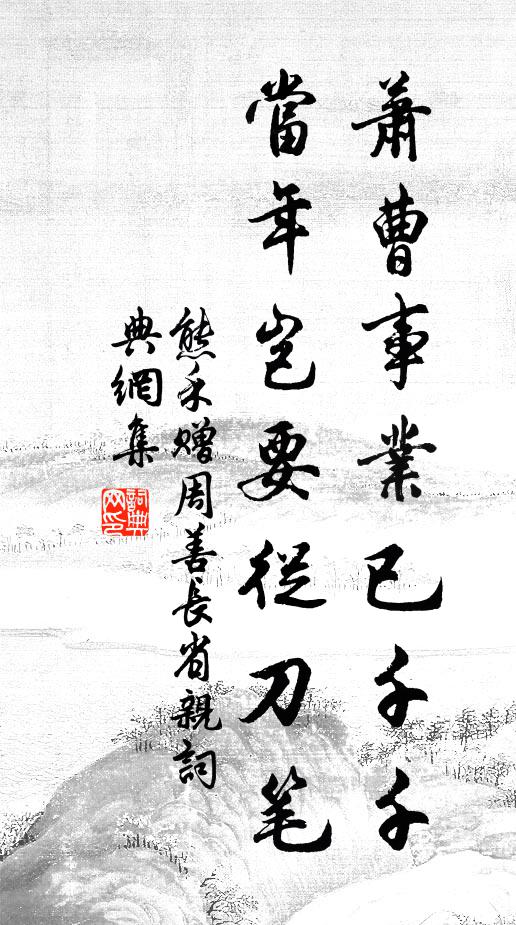 蕭曹事業已千千
當年豈要從刀笔
熊禾贈周善長省親詞
典網集
詞典网印